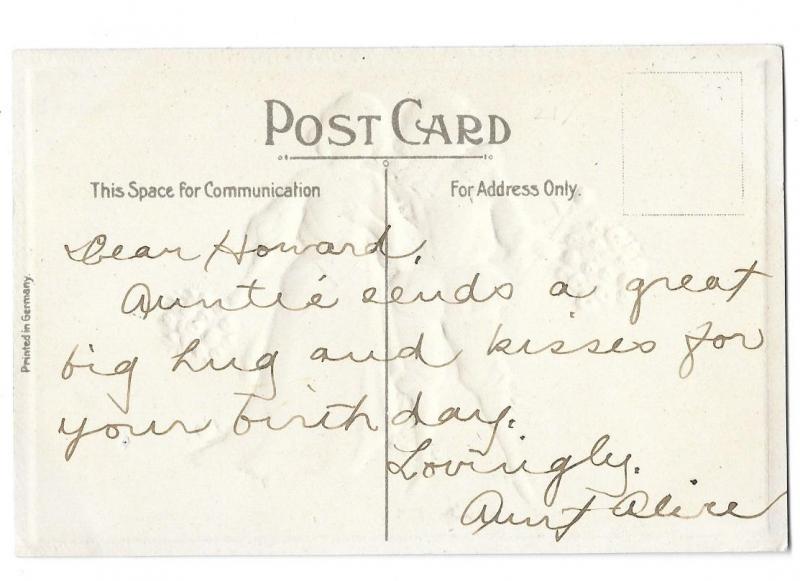 POST CARD
This Space for Communication
For Address Only.
Printed in Germany.
Dear Howard,
Auntie sends a great
big hug and kisses for
your birthday.
Lovingly.
Aunt Alice